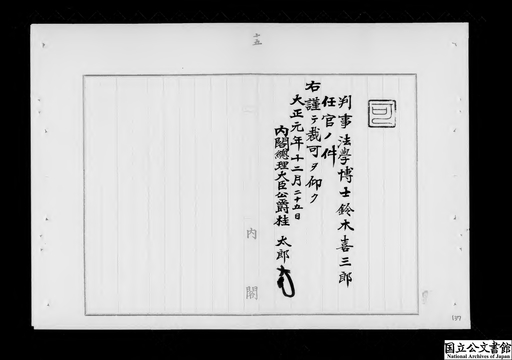 十五
可
判事法學博士鈴木喜三郎
任官ノ件
右謹テ裁可ヲ仰ク
大正元年十二月二十五日
内閣總理大臣公爵桂太郎
内閣
国立公文書館
National Archives of Japan